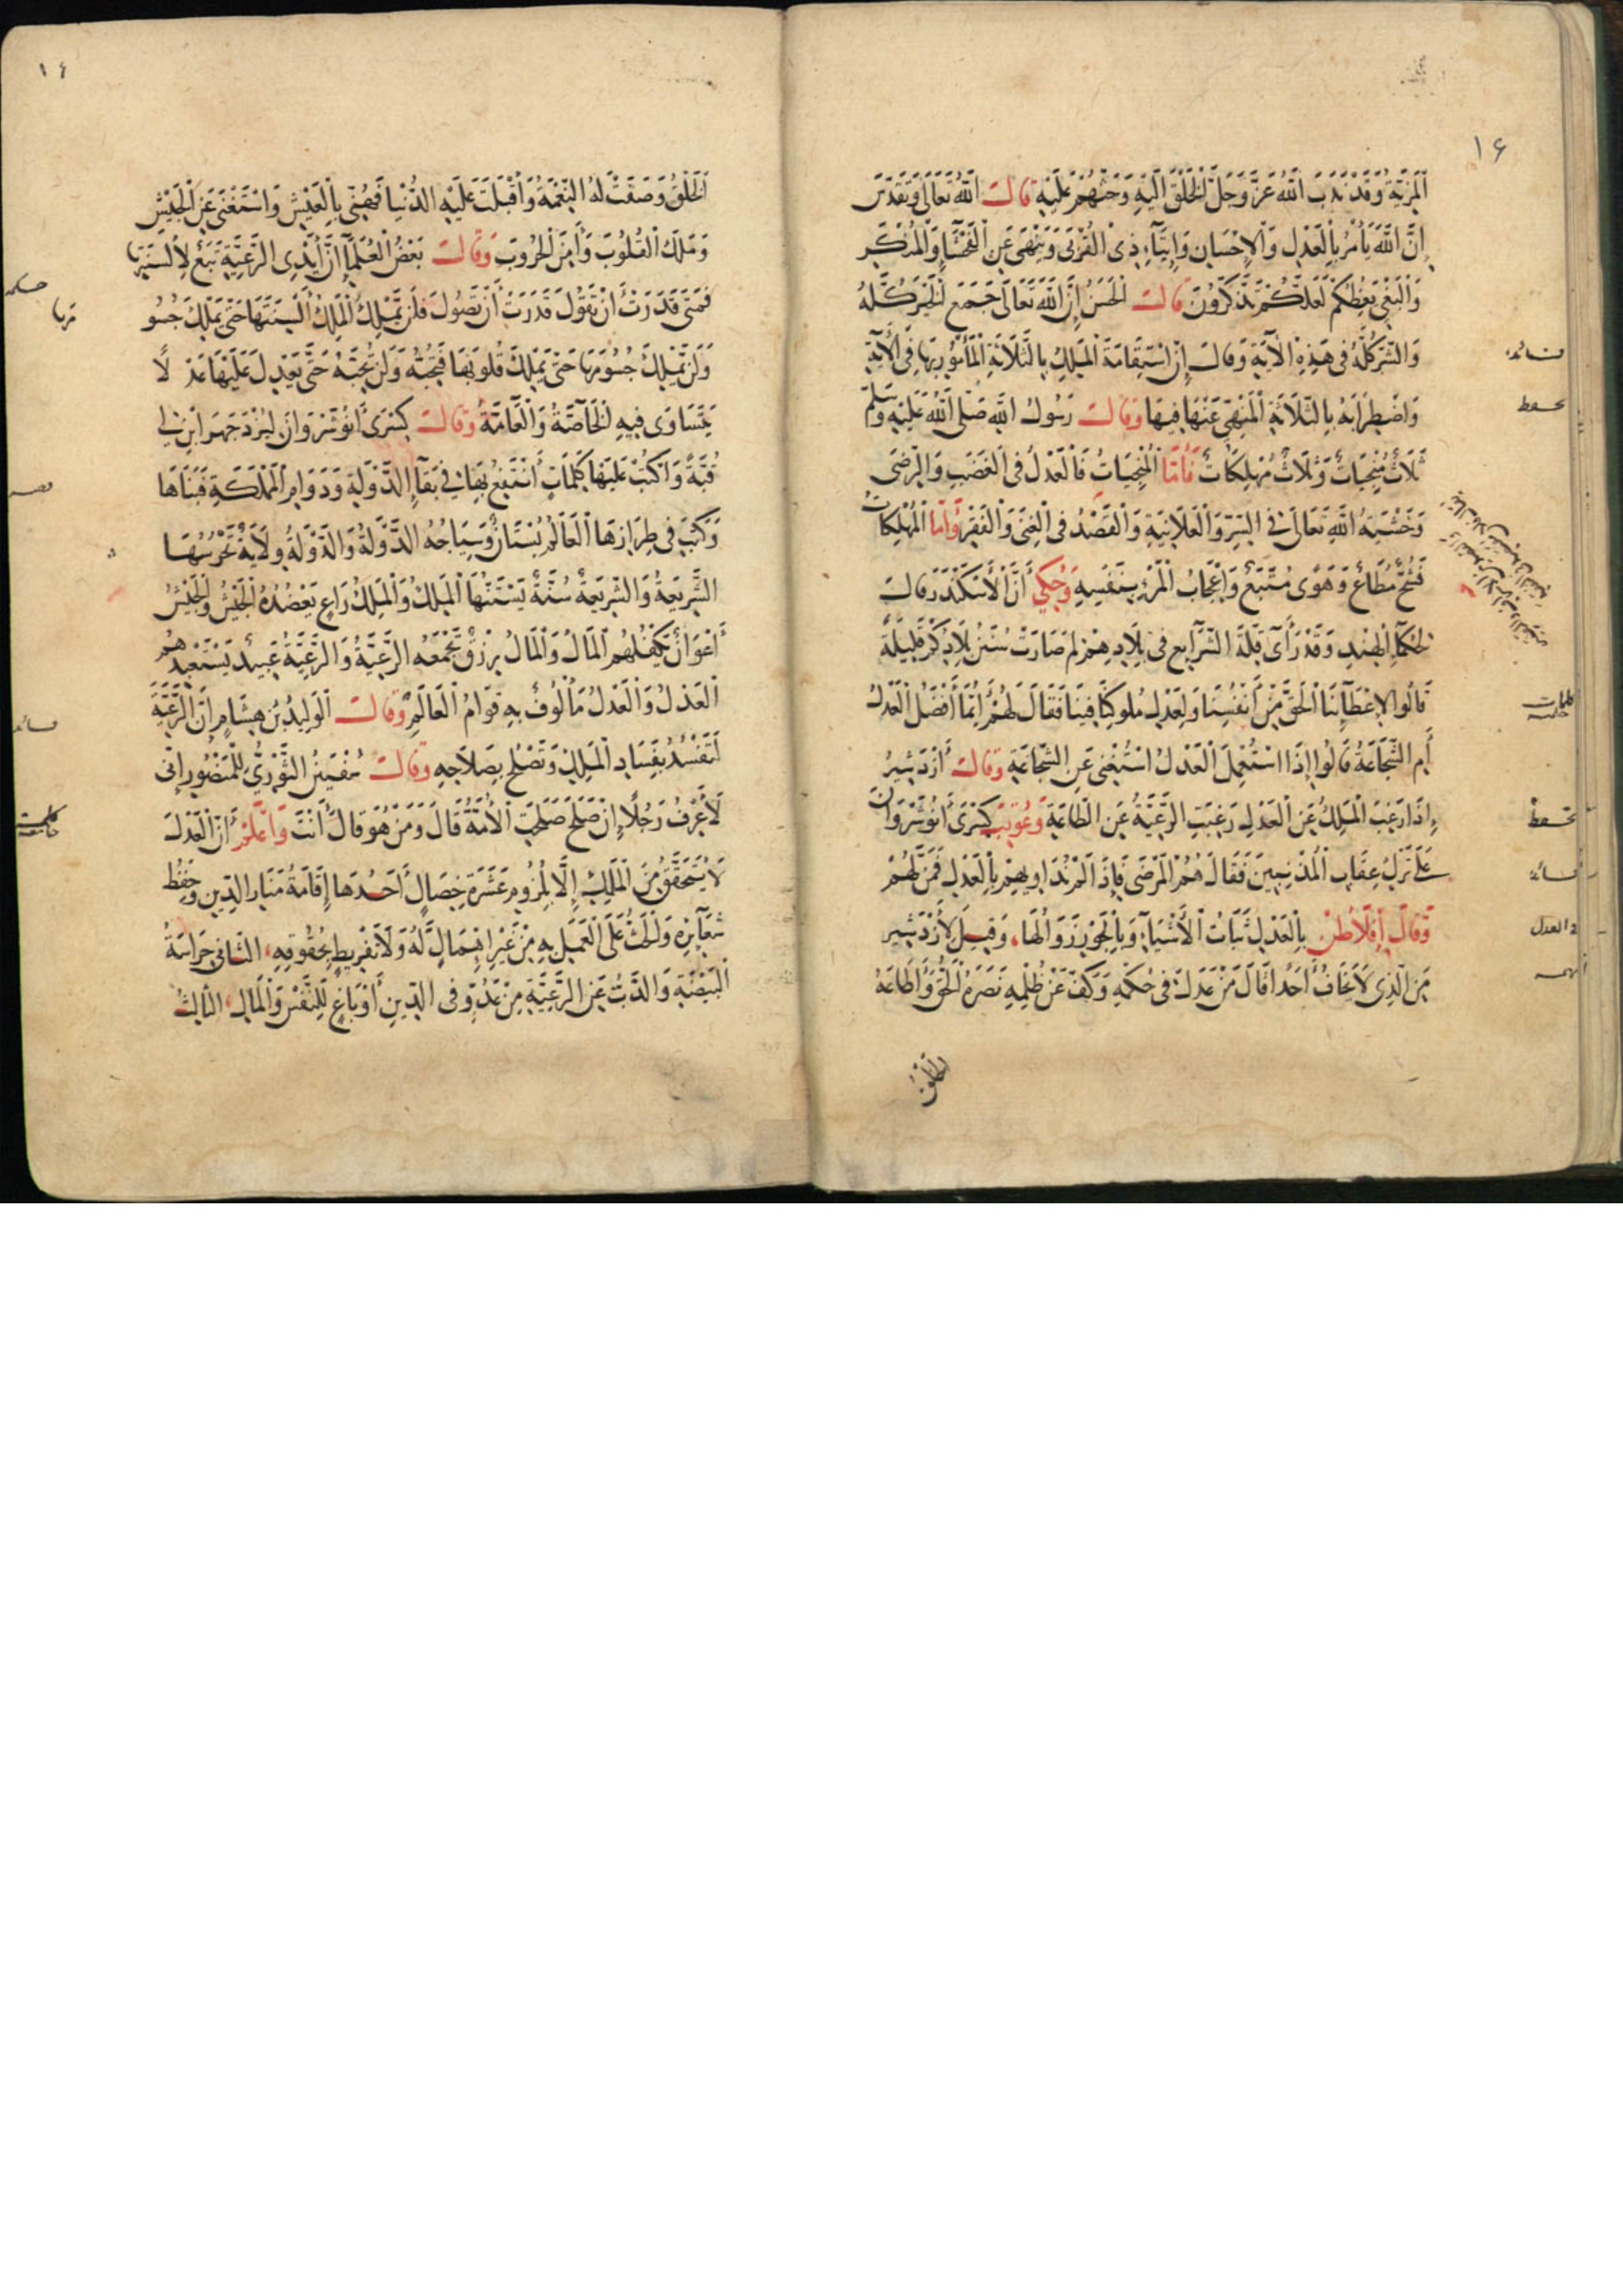 ١٦
الْمَزِيَّةِ وَقَدْ نَدَبَ اللَّهُ عَزَّ وَجَلَّ الْخَلْقَ إِلَيْهِ وَحَثَّهُمْ عَلَيْهِ قَالَ اللَّهُ تَعَالَى وَتَقَدَّسَ
إِنَّ اللَّهَ يَأْمُرُ بِالْعَدْلِ وَالْإِحْسَانِ وَإِيتَاءِ ذِي الْقُرْبَى وَيَنْهَى عَنِ الْفَحْشَاءِ وَالْمُنْكَرِ
وَالْبَغْيِ يَعِظُكُمْ لَعَلَّكُمْ تَذَكَّرُونَ قَالَ الْحَسَنُ إِنَّ اللَّهَ تَعَالَى جَمَعَ الْخَيْرَ كُلَّهُ
وَالشَّرَّ كُلَّهُ فِي هَذِهِ الْآيَةِ وَقَالَ إِنَّ اسْتِقَامَةَ الْمَلِكِ بِالثَّلَاثَةِ الْمَأْمُورِ بِهَا فِي الْآيَةِ
وَاضْطِرَابَهُ بِالثَّلَاثَةِ الْمَنْهِيِّ عَنْهَا فِيهَا وَقَالَ رَسُولُ اللَّهِ صَلَّى اللَّهُ عَلَيْهِ وَسَلَّمَ
ثَلَاثٌ مُنْجِيَاتٌ وَثَلَاثٌ مُهْلِكَاتٌ فَأَمَّا الْمُنْجِيَاتُ فَالْعَدْلُ فِي الْغَضَبِ وَالرِّضَى
وَخَشْيَةُ اللَّهِ تَعَالَى فِي السِّرِّ وَالْعَلَانِيَةِ وَالْقَصْدُ فِي الْغِنَى وَالْفَقْرِ وَأَمَّا الْمُهْلِكَاتُ
فَشُحٌّ مُطَاعٌ وَهَوًى مُتَّبَعٌ وَإِعْجَابُ الْمَرْءِ بِنَفْسِهِ وَحُكِيَ أَنَّ الْأَسْكَنْدَرَ قَالَ
لِحُكَمَاءِ الْهِنْدِ وَقَدْ رَأَى قِلَّةَ الشَّرَائِعِ فِي بِلَادِهِمْ لِمَ صَارَتْ سُنَنُ بِلَادِكُمْ قَلِيلَةً
قَالُوا لِإِعْطَائِنَا الْحَقَّ مِنْ أَنْفُسِنَا وَلِعَدْلِ مُلُوكِنَا فِينَا فَقَالَ لَهُمْ أَيُّمَا أَفْضَلُ الْعَدْلُ
أَمِ الشَّجَاعَةُ قَالُوا إِذَا اسْتُعْمِلَ الْعَدْلُ اسْتُغْنِيَ عَنِ الشَّجَاعَةِ وَقَالَ أَزْدَشِيرُ
إِذَا رَغِبَ الْمَلِكُ عَنِ الْعَدْلِ رَغِبَتِ الرَّعِيَّةُ عَنِ الطَّاعَةِ وَعُوتِبَ كِسْرَى أَنُوشَرْوَانَ
عَلَى تَرْكِ عِقَابِ الْمُذْنِبِينَ فَقَالَ هُمُ الْمَرْضَى فَإِذَا لَمْ نُدَاوِيهِمْ بِالْعَدْلِ فَمَنْ لَهُمْ
وَقَالَ أَفْلَاطُنْ بِالْعَدْلِ ثَبَاتُ الْأَشْيَاءِ وَبِالْجَوْرِ زَوَالُهَا، وَقِيلَ لِأَزْدَشِيرَ
مَنِ الَّذِي لَا يَخَافُ أَحَدًا قَالَ مَنْ عَدَلَ فِي حُكْمِهِ وَكَفَّ عَنْ ظُلْمِهِ نَصَرَهُ الْحَقُّ وَأَطَاعَهُ
الخلق
الْخَلْقُ وَصَفَتْ لَهُ النِّعْمَةُ وَأَقْبَلَتْ عَلَيْهِ الدُّنْيَا فَهُنِّيَ بِالْعَيْشِ وَاسْتَغْنَى عَنِ الْجَيْشِ
وَمَلَكَ الْقُلُوبَ وَأَمِنَ الْحُرُوبَ وَقَالَ بَعْضُ الْعُلَمَاءِ إِنَّ أَيْدِي الرَّعِيَّةِ تَبَعٌ لِأَلْسِنَتِهَا
فَمَتَى قَدَرَتْ أَنْ تَقُولَ قَدَرَتْ أَنْ تَصُولَ فَلَنْ يَمْلِكَ الْمَلِكُ أَلْسِنَتَهَا حَتَّى يَمْلِكَ جُسُو
مَهَا
وَلَنْ يَمْلِكَ جُسُومَهَا حَتَّى يَمْلِكَ قُلُوبَهَا فَتُحِبَّهُ وَلَنْ تُحِبَّهُ حَتَّى يَعْدِلَ عَلَيْهَا عَدْلًا
يَتَسَاوَى فِيهِ الْخَاصَّةُ وَالْعَامَّةُ وَقَالَ كِسْرَى أَنُوشَرْوَانَ لِبُزُرْجَمِهْرَ ابْنِ لِي
قُبَّةً وَاكْتُبْ عَلَيْهَا كَلِمَاتٍ أَنْتَفِعُ بِهَا فِي بَقَاءِ الدَّوْلَةِ وَدَوَامِ الْمَمْلَكَةِ فَبَنَاهَا
وَكَتَبَ فِي طِرَازِهَا الْعَالَمُ بُسْتَانٌ وَسِيَاجُهُ الدَّوْلَةُ وَالدَّوْلَةُ وِلَايَةٌ تَحْرُسُهَا
الشَّرِيعَةُ وَالشَّرِيعَةُ سُنَّةٌ يَسْتَنُّهَا الْمَلِكُ وَالْمَلِكُ رَاعٍ يَعْضُدُهُ الْجَيْشُ وَالْجَيْشُ
أَعْوَانٌ يَكْفُلُهُمُ الْمَالُ وَالْمَالُ رِزْقٌ تَجْمَعُهُ الرَّعِيَّةُ وَالرَّعِيَّةُ عَبِيدٌ يَسْتَعْبِدُهُمُ
الْعَدْلُ وَالْعَدْلُ مَأْلُوفٌ بِهِ قَوَامُ الْعَالَمِ وَقَالَ الْوَلِيدُ بْنُ هِشَامٍ إِنَّ الرَّعِيَّةَ
لَتَفْسُدُ بِفَسَادِ الْمَلِكِ وَتَصْلُحُ بِصَلَاحِهِ وَقَالَ سُفْيَنُ الثَّوْرِيُّ لِلْمَنْصُورِ إِنِّي
لَأَعْرِفُ رَجُلًا إِنْ صَلَحَ صَلَحَتِ الْأُمَّةُ قَالَ وَمَنْ هُوَ قَالَ أَنْتَ وَاعْلَمْ أَنَّ الْعَدْلَ
لَا يَتَحَقَّقُ مِنَ الْمَلِكِ إِلَّا بِلُزُومِ عَشَرَةِ خِصَالٍ أَحَدُهَا إِقَامَةُ مَنَارِ الدِّينِ وَحِفْظُ
شَعَائِرِهِ وَالْحَثُّ عَلَى الْعَمَلِ بِهِ مِنْ غَيْرِ إِهْمَالٍ لَهُ وَلَا تَفْرِيطٍ بِحُقُوقِهِ، الثَّانِي حِرَاسَةُ
الْبَيْضَةِ وَالذَّبُّ عَنِ الرَّعِيَّةِ مِنْ عَدُوٍّ فِي الدِّينِ أَوْ بَاغٍ لِلنَّفْسِ وَالْمَالِ، الثَّالِثُ